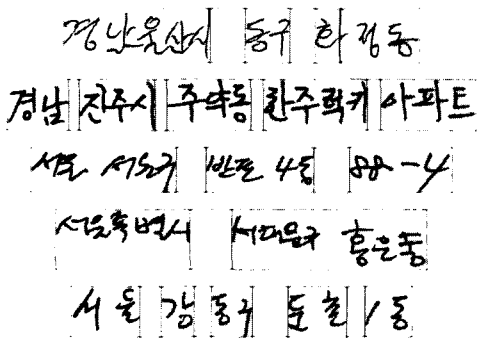 경남울산시 동구 화정동
경남 진주시 주약동 한주럭키 아파트
서울 서초구 반포4동 88-4
서울특별시 서대문구 홍은동
서울 강동구 둔촌1동